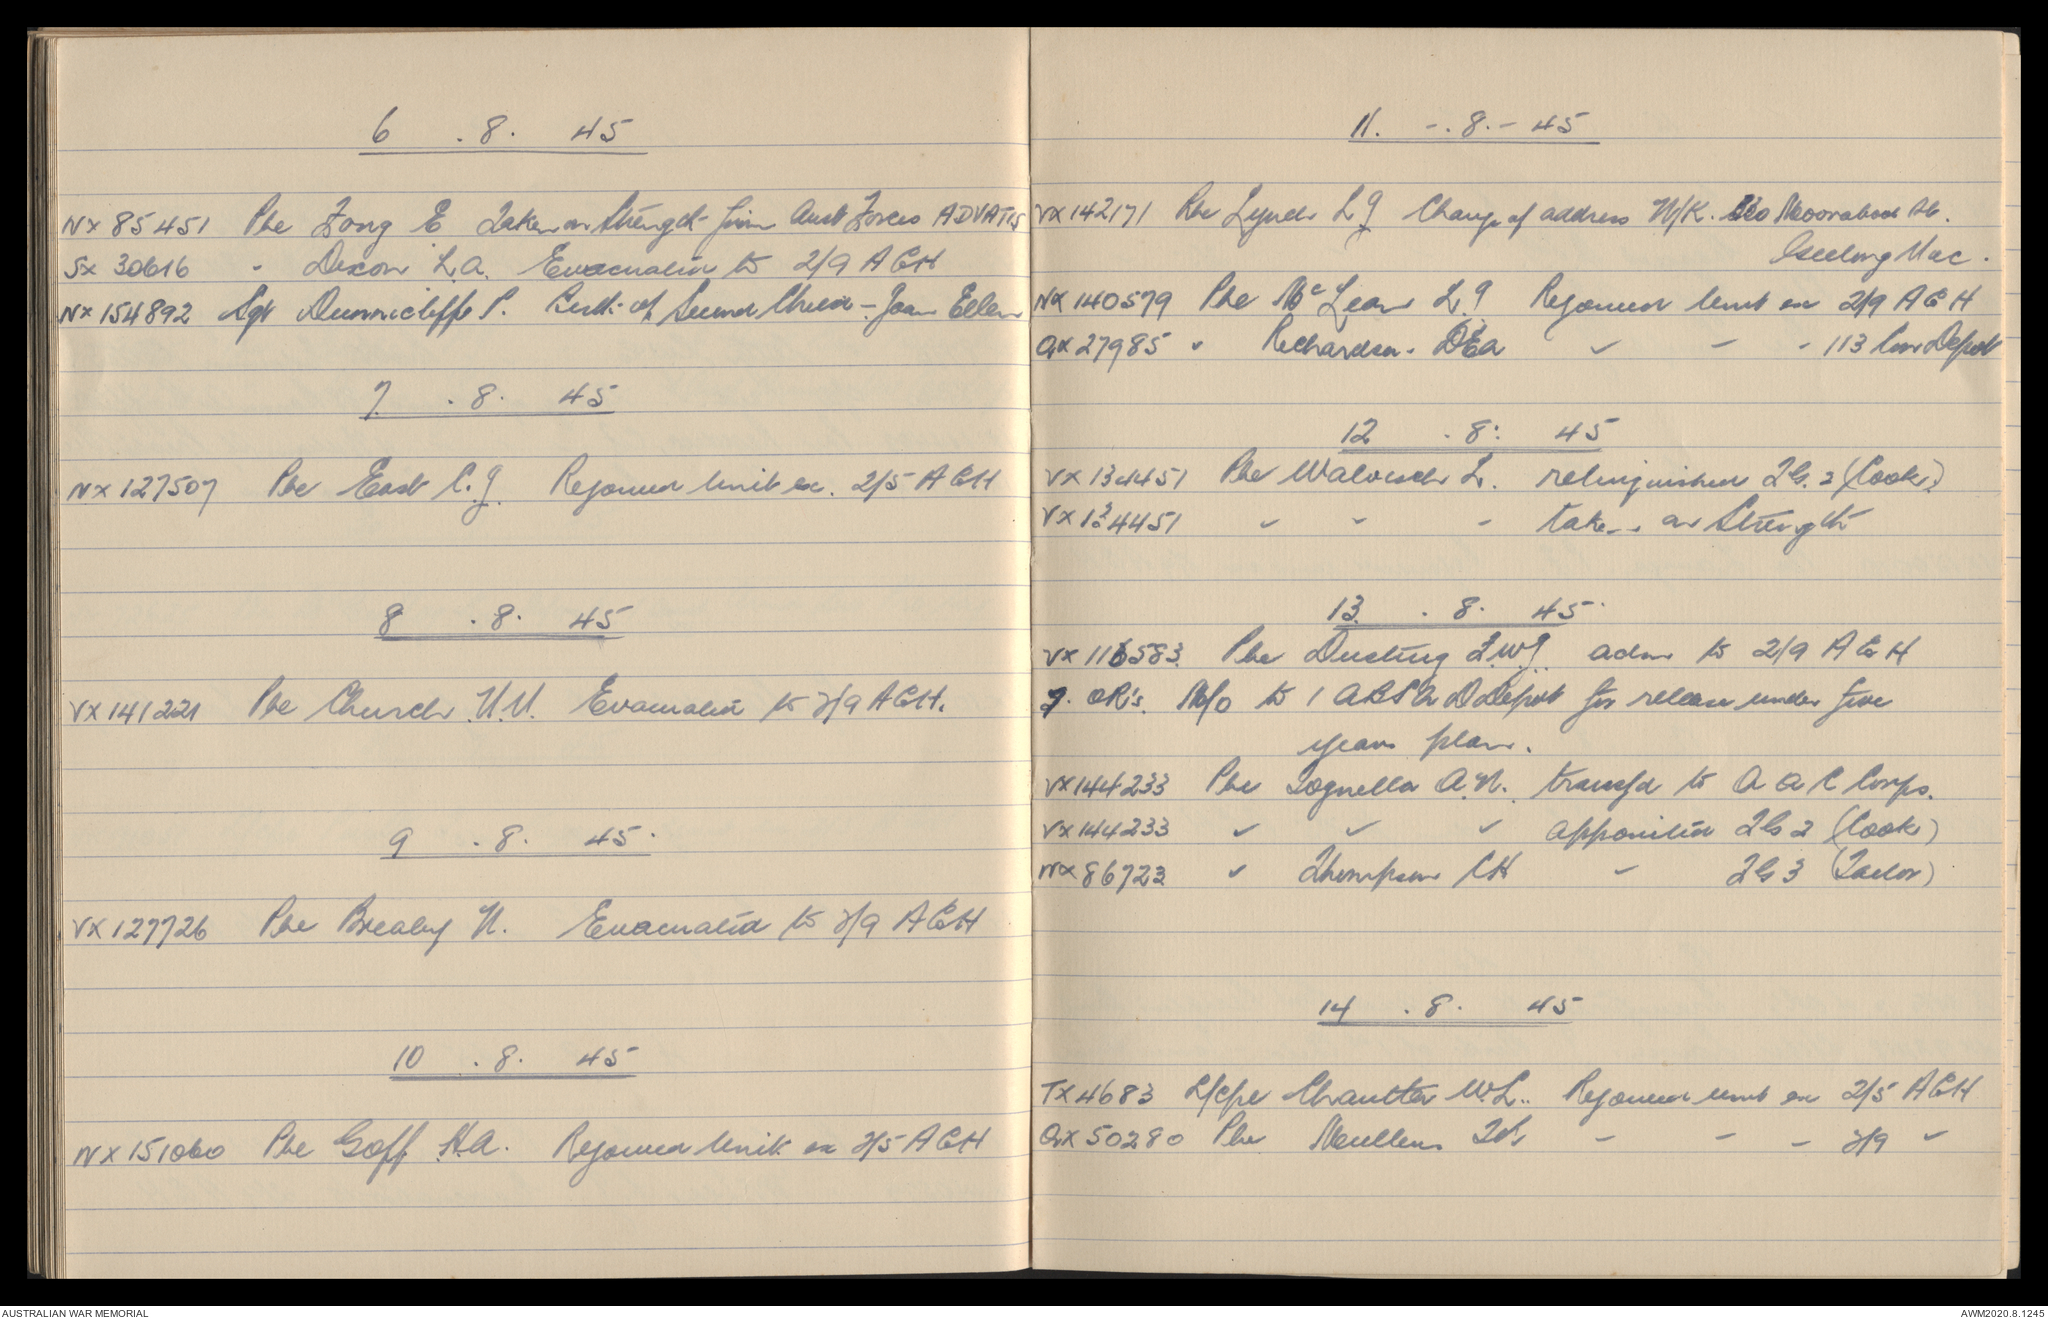 6 . 8. 45
NX 85451 Pte Fong E Taken on Strength from Aust Forces ADVATIS
SX 30616 " Dixon L.A. Evacuated to 2/9 AGH
NX 154892 Sgt Dunnicliffe P. Birth of Second Child - Joan Ellen
7. . 8. 45
NX 127507 Pte East C.J. Rejoined Unit ex. 2/5 AGH
8 . 8. 45
VX 141221 Pte Church Evacuated to 2/9 AGH.
9 . 8. 45.
VX 127726 Pte Brealey N. Evacuated to 2/9 AGH
10 . 8. 45
NX 151060 Pte Goff H.A. Rejoined Unit ex 2/5 AGH
11. -. 8. - 45
VX 142171 Pte Lynch L J Change of address N/K. Moorabool St.
Geelong Vic.
NX 140579 Pte McLean L.J Rejoined Unit ex 2/9 AGH
QX 27985 " Richardson. " - - 113 Con Depot
12 . 8: 45
VX 134451 Pte L. relinquished 2G. 2 (Cook)
VX 134451 " " - taken on Strength
13. . 8. 45.
VX 116583. Pte Ducting adm to 2/9 AGH
7. OR's. M/O to 1 Depot for release under five
years plan.
VX 144233 Pte Tognella A.N. transfd to A A C Corps.
VX 144233 " " " appointed 2G 2 (Cook)
NX 86723 " Thompson CH - 2G 3 (Tailor)
14 . 8. 45
TX 4683 L/Cpl W.L.. Rejoined Unit ex 2/5 AGH
QX 50280 Pte Mullens - - - 2/9 "
AUSTRALIAN WAR MEMORIAL
AWM2020.8.1245